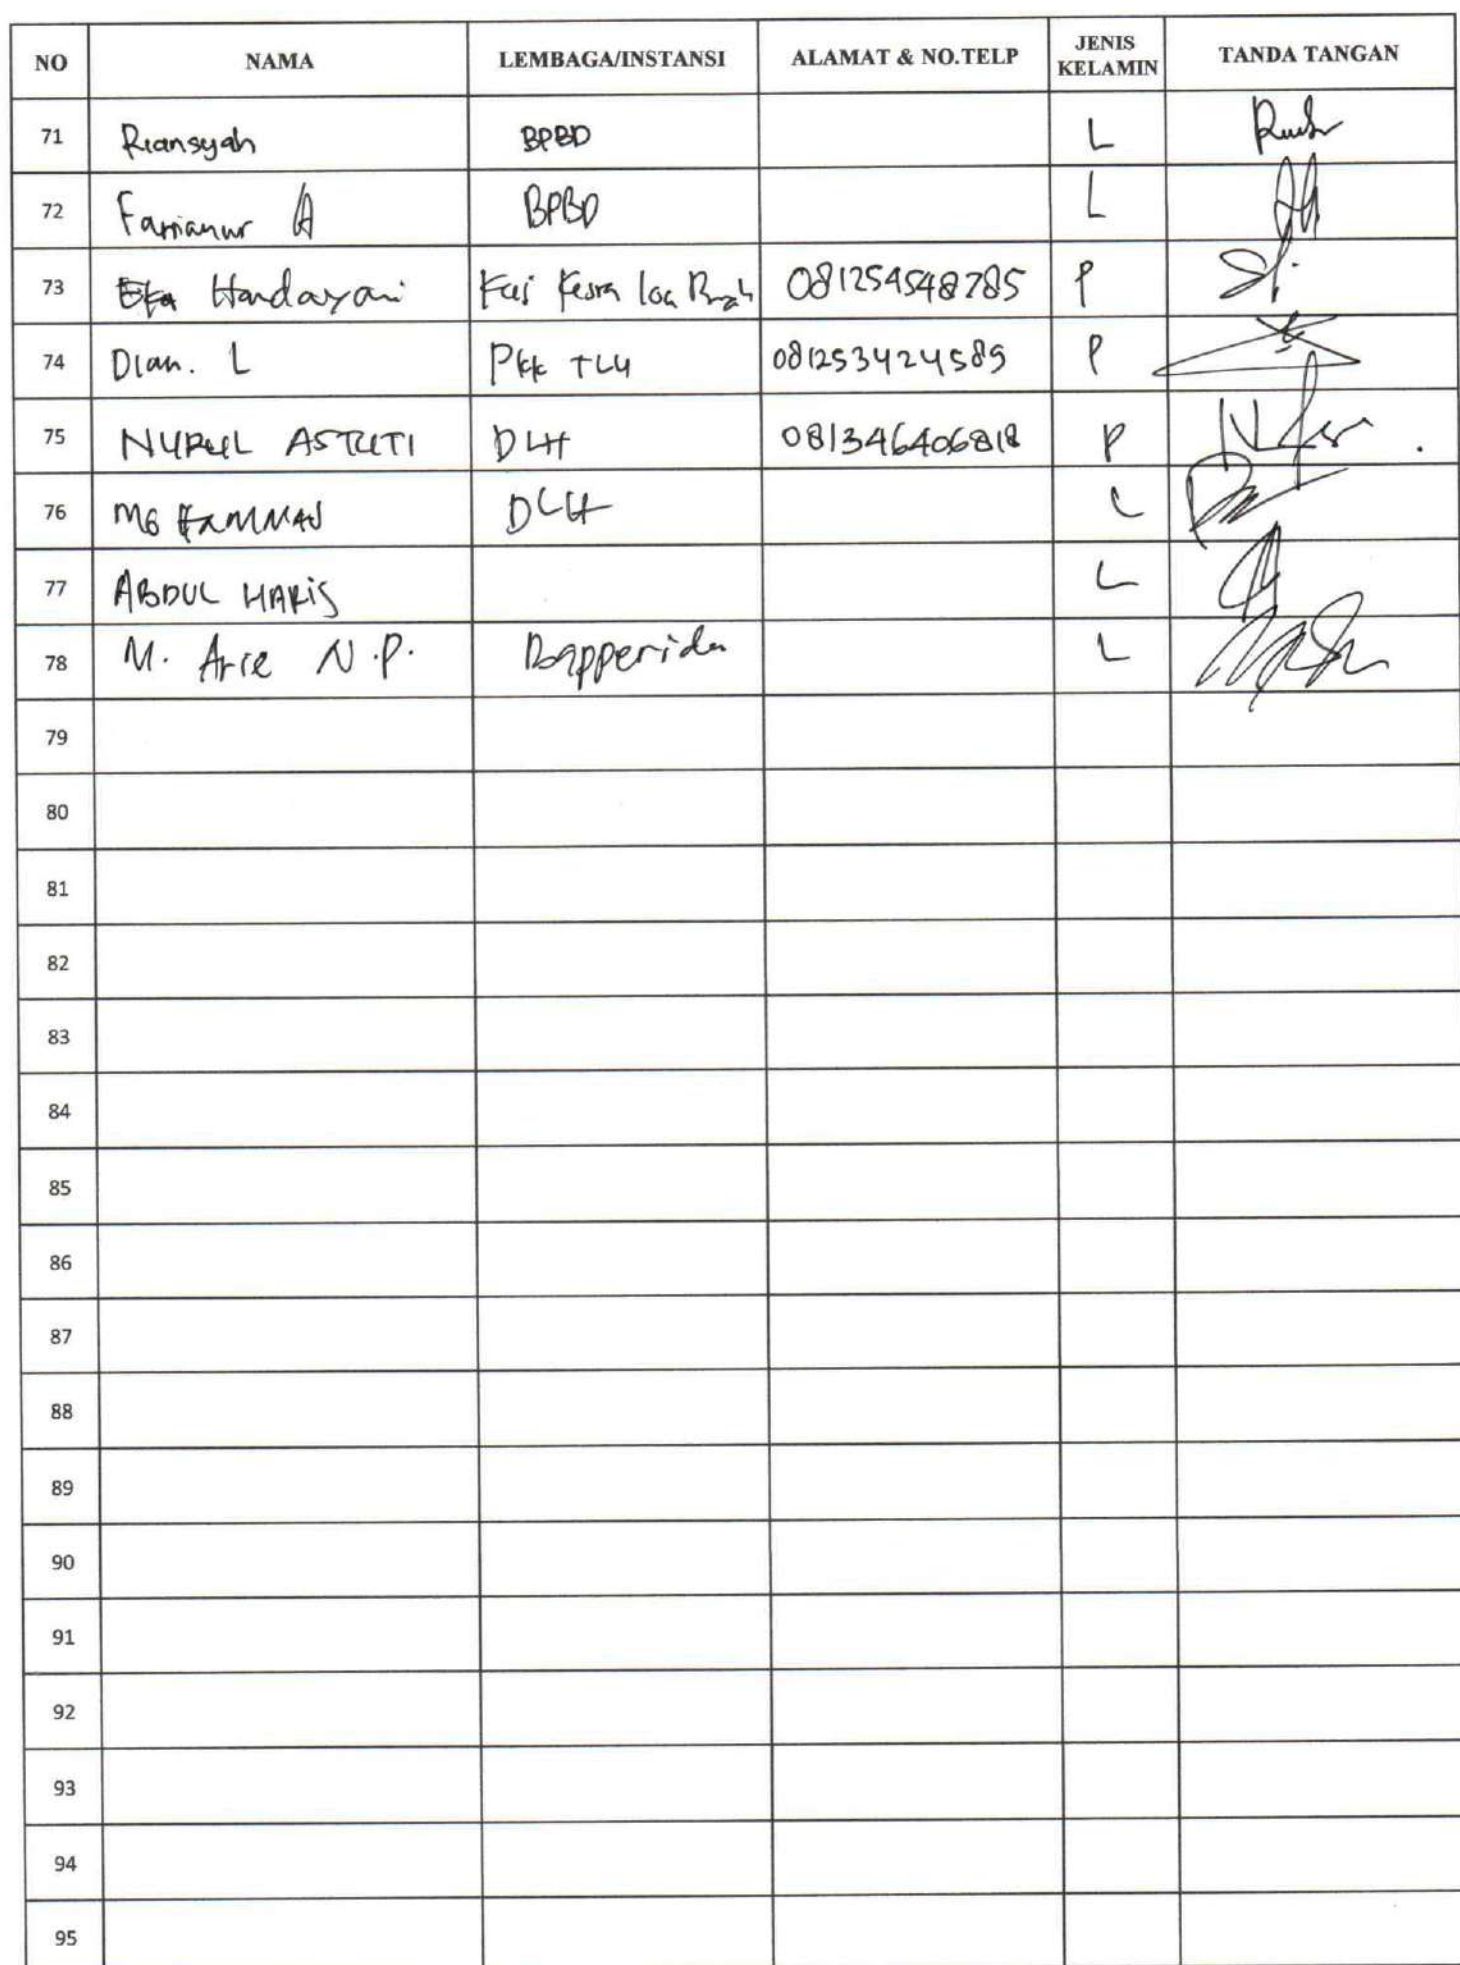 NO NAMA LEMBAGA/INSTANSI ALAMAT & NO.TELP JENIS KELAMIN TANDA TANGAN
71 Riansyah BPBD L
72 Farrianur A BPBD L
73 Eka Handayani Kasi Kesra Loa Buah 081254548785 P
74 Dian. L PKK TLU 081253424589 P
75 NURUL ASTUTI DLH 081346406818 P
76 DLH L
77 ABDUL HARIS L
78 M. Arie N.P. Bapperida L
79
80
81
82
83
84
85
86
87
88
89
90
91
92
93
94
95